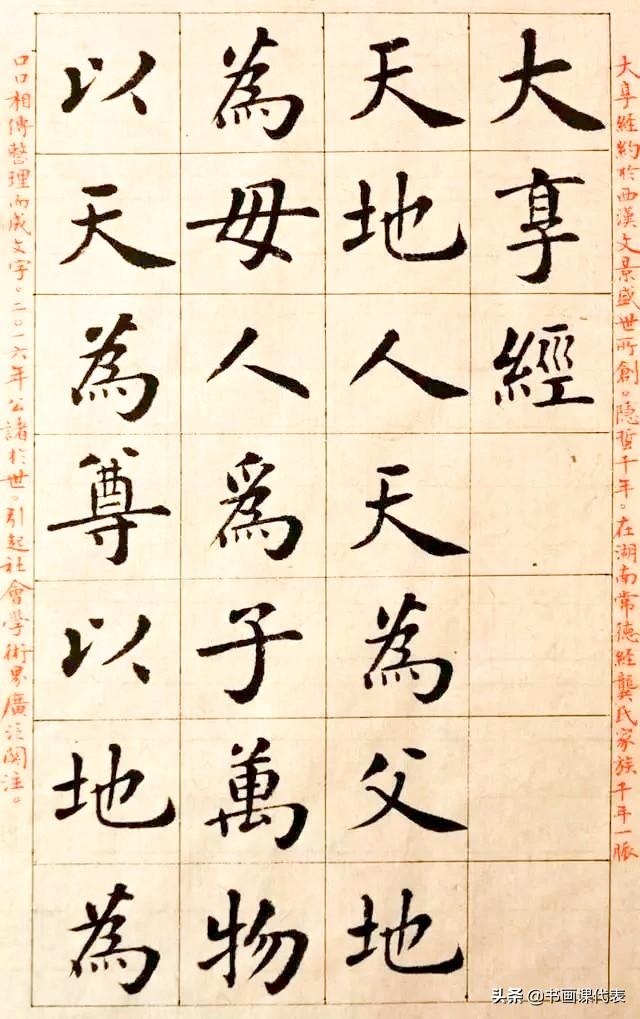 大享經約於西漢文景盛世所創。隐千年。在湖南常德經龔氏家族千年一脈
大享經
天地人天為父地
為母人爲子萬物
以天為尊以地為
口口相傳整理而成文字。二〇一六年公諸於世。引起社會學術界廣泛関注。
头条 @书画课代表